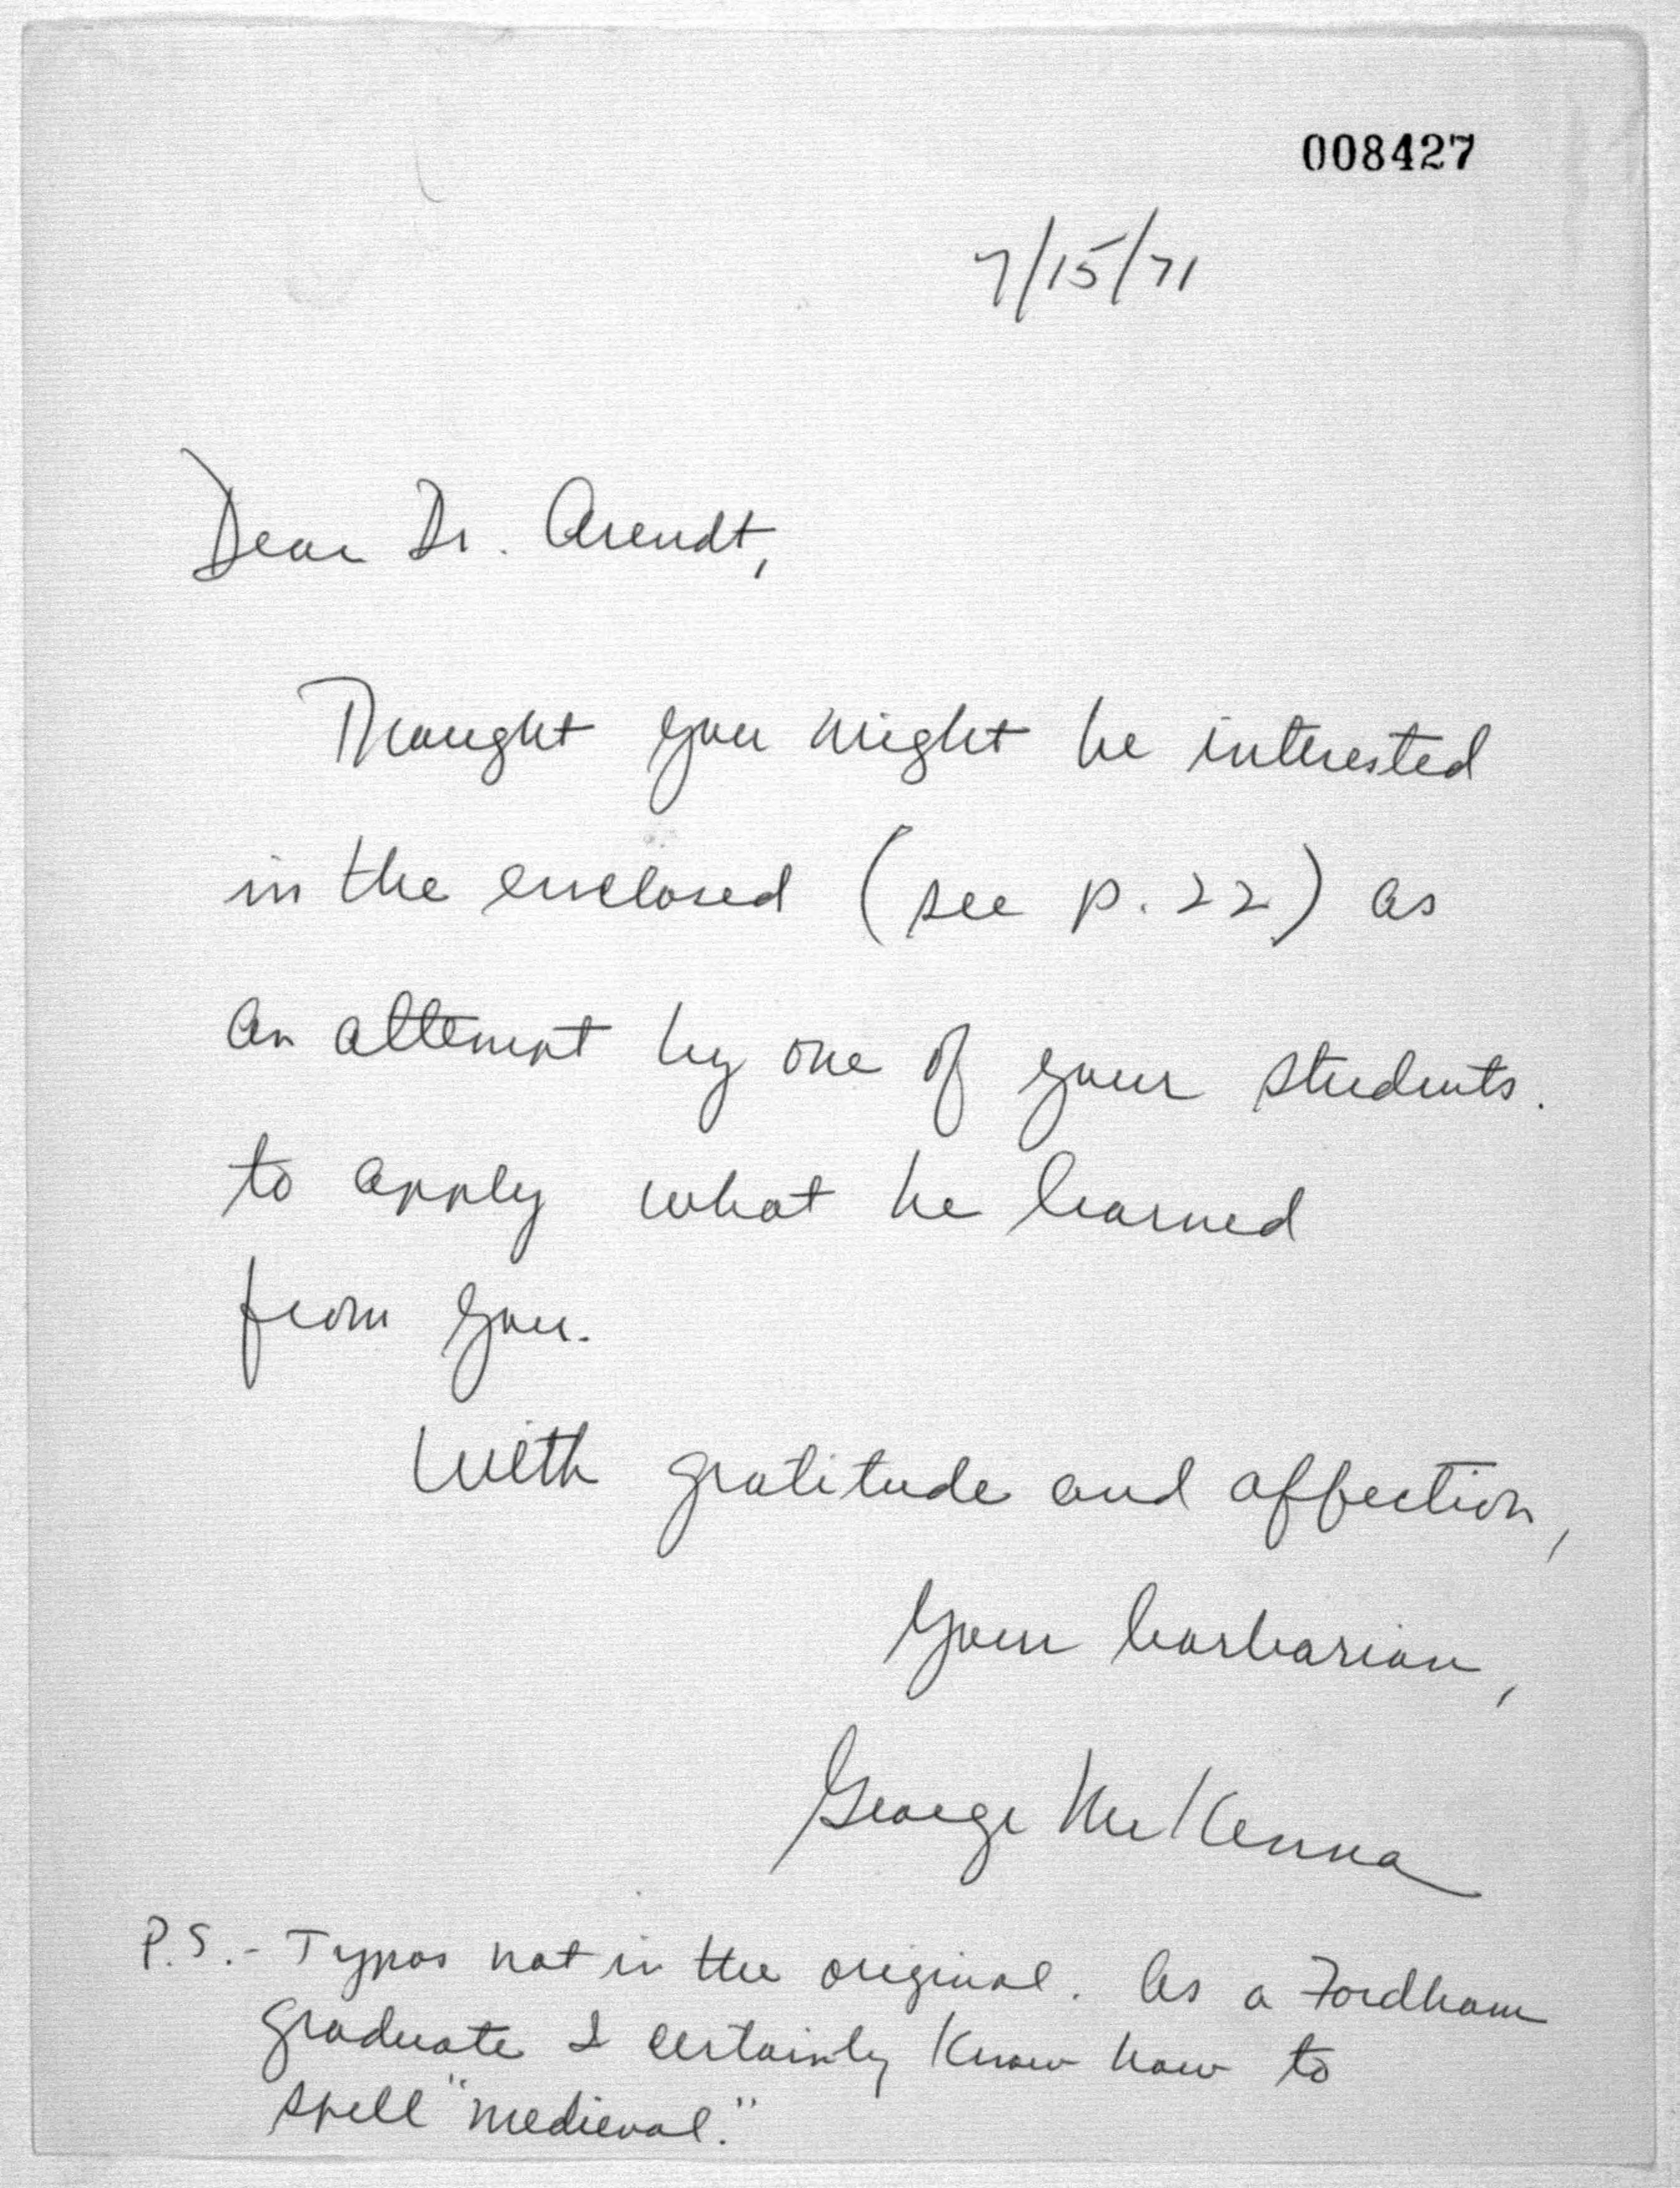 008427
7/15/71
Dear Dr. Arendt,
Thought you might be interested
in the enclosed (see p. 22) as
an attempt by one of your students.
to apply what he learned
from you.
With gratitude and affection,
Your barbarian,
George McKenna
P.S. - Typos not in the original. As a Fordham
graduate I certainly know how to
spell "medieval."